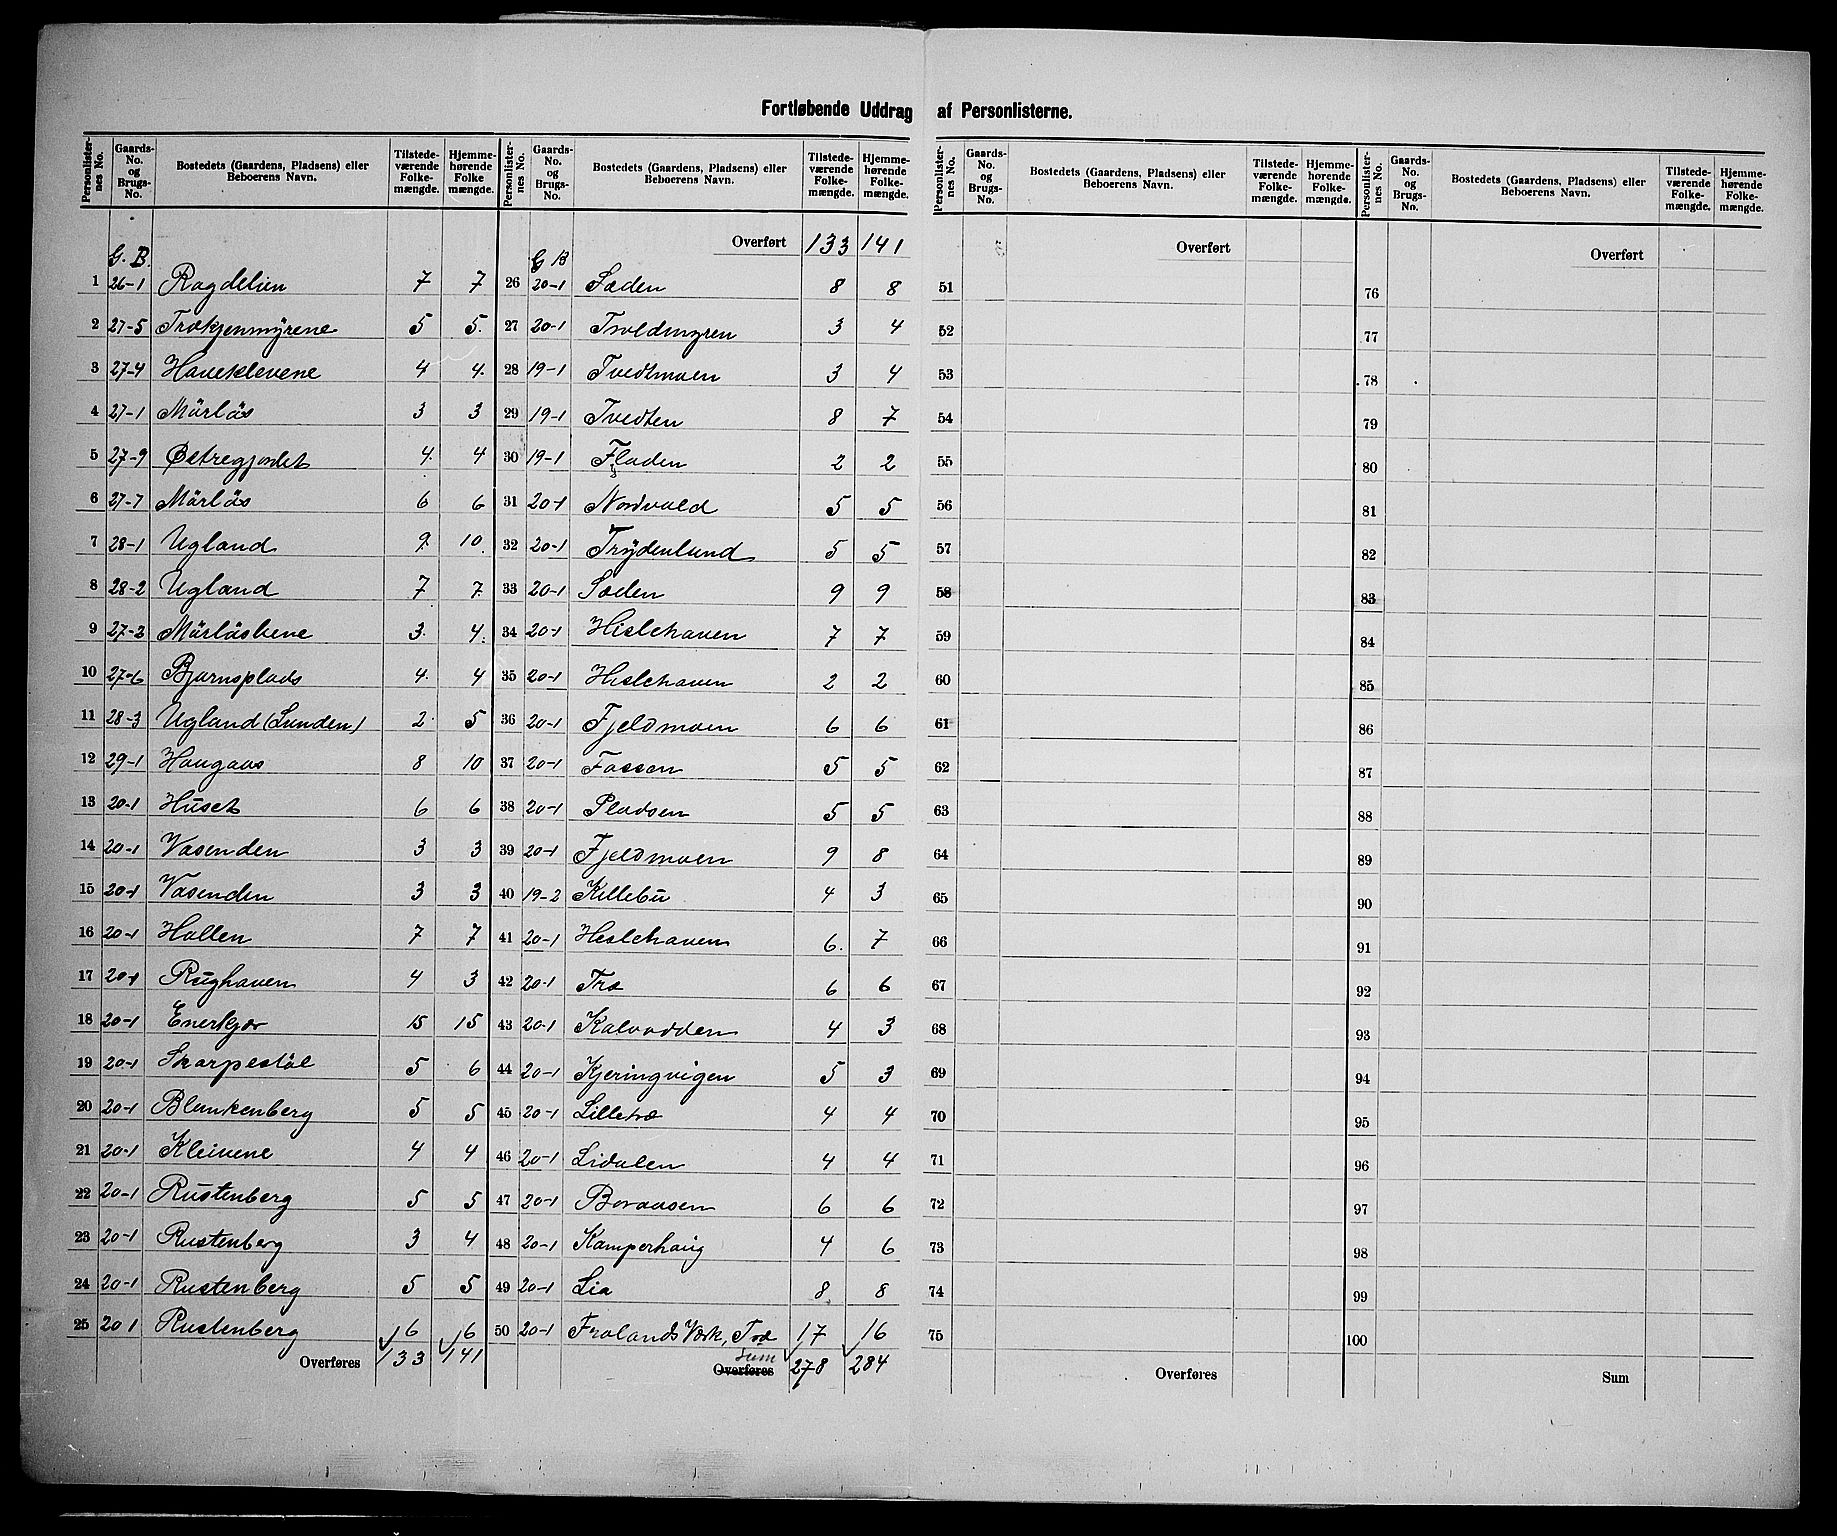 Fortløbende Uddrag af Personlisterne.
Personlister- nes No. Gaards- No. og Brugs- No. Bostedets (Gaardens, Pladsens) eller Beboerens Navn. Tilstede- værende Folke- mængde. Hjemme- hørende Folke mængde.
G. B.
1 26-1 Ragdelien 7 7
2 27-5 Trækjenmyrene 5 5.
3 27-4 Haveklevene 4 4.
4 27-1 Mörlös 3 3
5 27-9 Østregjordet 4. 4
6 27-7 Mörlös 6 6
7 28-1 Ugland 9. 10.
8 28-2 Ugland 7 7.
9 27-2 Mörlösbene 3. 4.
10 27-6 Bjørnsplads 4. 4
11 28-3 Ugland (Lunden) 2. 5
12 29-1 Haugaas 8 10
13 20-1 Huset 6 6
14 20-1 Vasenden 3 3
15 20-1 Vasenden 3 3
16 20-1 Hallen 7 7
17 20-1 Rughaven 4 3
18 20-1 Enerkjær 15 15
19 20-1 Skarpestöl 5 6
20 20-1 Blankenberg 5 5
21 20-1 Kleivene 4 4
22 20-1 Rustenberg 5 5
23 20-1 Rustenberg 3 4
24 20-1 Rustenberg 5 5
25 20 1 Rustenberg 6 6
Overføres 133 141
Personlister- nes No. Gaards- No. og Brugs- No. Bostedets (Gaardens, Pladsens) eller Beboerens Navn. Tilstede- værende Folke- mængde. Hjemme- hørende Folke- mængde.
Overført 133 141
G B
26 20-1 Sæden 8 8
27 20-1 Tveldmyren 3 4
28 19-1 Tvedtmoen 3 4
29 19-1 Tvedten 8 7
30 19-1 Fladen 2 2
31 20-1 Nordvold 5 5
32 20-1 Frydenlund 5 5
33 20-1 Sæden 9 9
34 20-1 Hislehaven 7 7
35 20-1 Hislehaven 2 2
36 20-1 Fjeldmoen 6 6
37 20-1 Fossen 5 5
38 20-1 Pladsen 5 5
39 20-1 Fjeldmoen 9 8
40 19-2 Killebu 4 3
41 20-1 Heslehaven 6. 7
42 20-1 Træ 6 6
43 20-1 Kalvodden 4 3
44 20-1 Kjeringvigen 5 3
45 20-1 Lilletræ 4 4
46 20-1 Lidalen 4 4
47 20-1 Boraasen 6 6
48 20-1 Kamperhaug 4 6
49 20-1 Lia 8 8
50 20-1 Frolands Værk, Træ 17 16
Sum
Overføres 278 284
Personlister- nes No. Gaards- No. og Brugs- No. Bostedets (Gaardens, Pladsens) eller Beboerens Navn. Tilstede- værende Folke- mængde. Hjemme- hørende Folke- mængde.
Overført
51
52
53
54
55
56
57
58
59
60
61
62
63
64
65
66
67
68
69
70
71
72
73
74
75
Overføres
Personlister- nes No. Gaards- No. og Brugs- No. Bostedets (Gaardens, Pladsens) eller Beboerens Navn. Tilstede- værende Folke- mængde. Hjemme- hørende Folke- mængde.
Overført
76
77
78
79
80
81
82
83
84
85
86
87
88
89
90
91
92
93
94
95
96
97
98
99
100
Sum